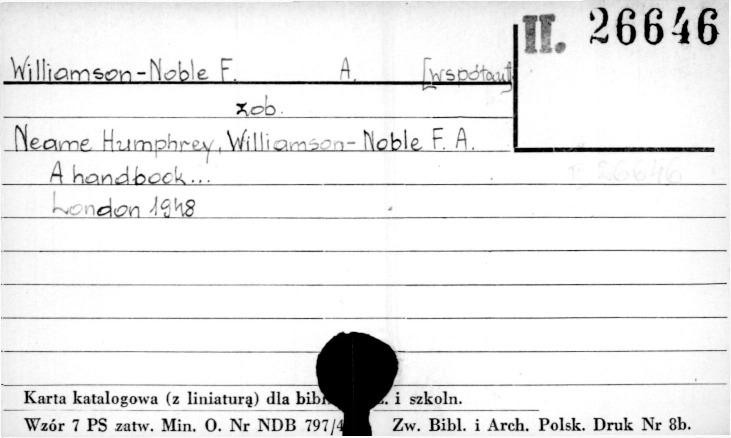 II. 26646
Williamson-Noble F. A. [współaut]
zob.
Neame Humphrey, Williamson-Noble F. A.
A handbook...
II 26646
London 1948
Karta katalogowa (z liniaturą) dla i szkoln.
Wzór 7 PS zatw. Min. O. Nr NDB 797/4 Zw. Bibl. i Arch. Polsk. Druk Nr 8b.